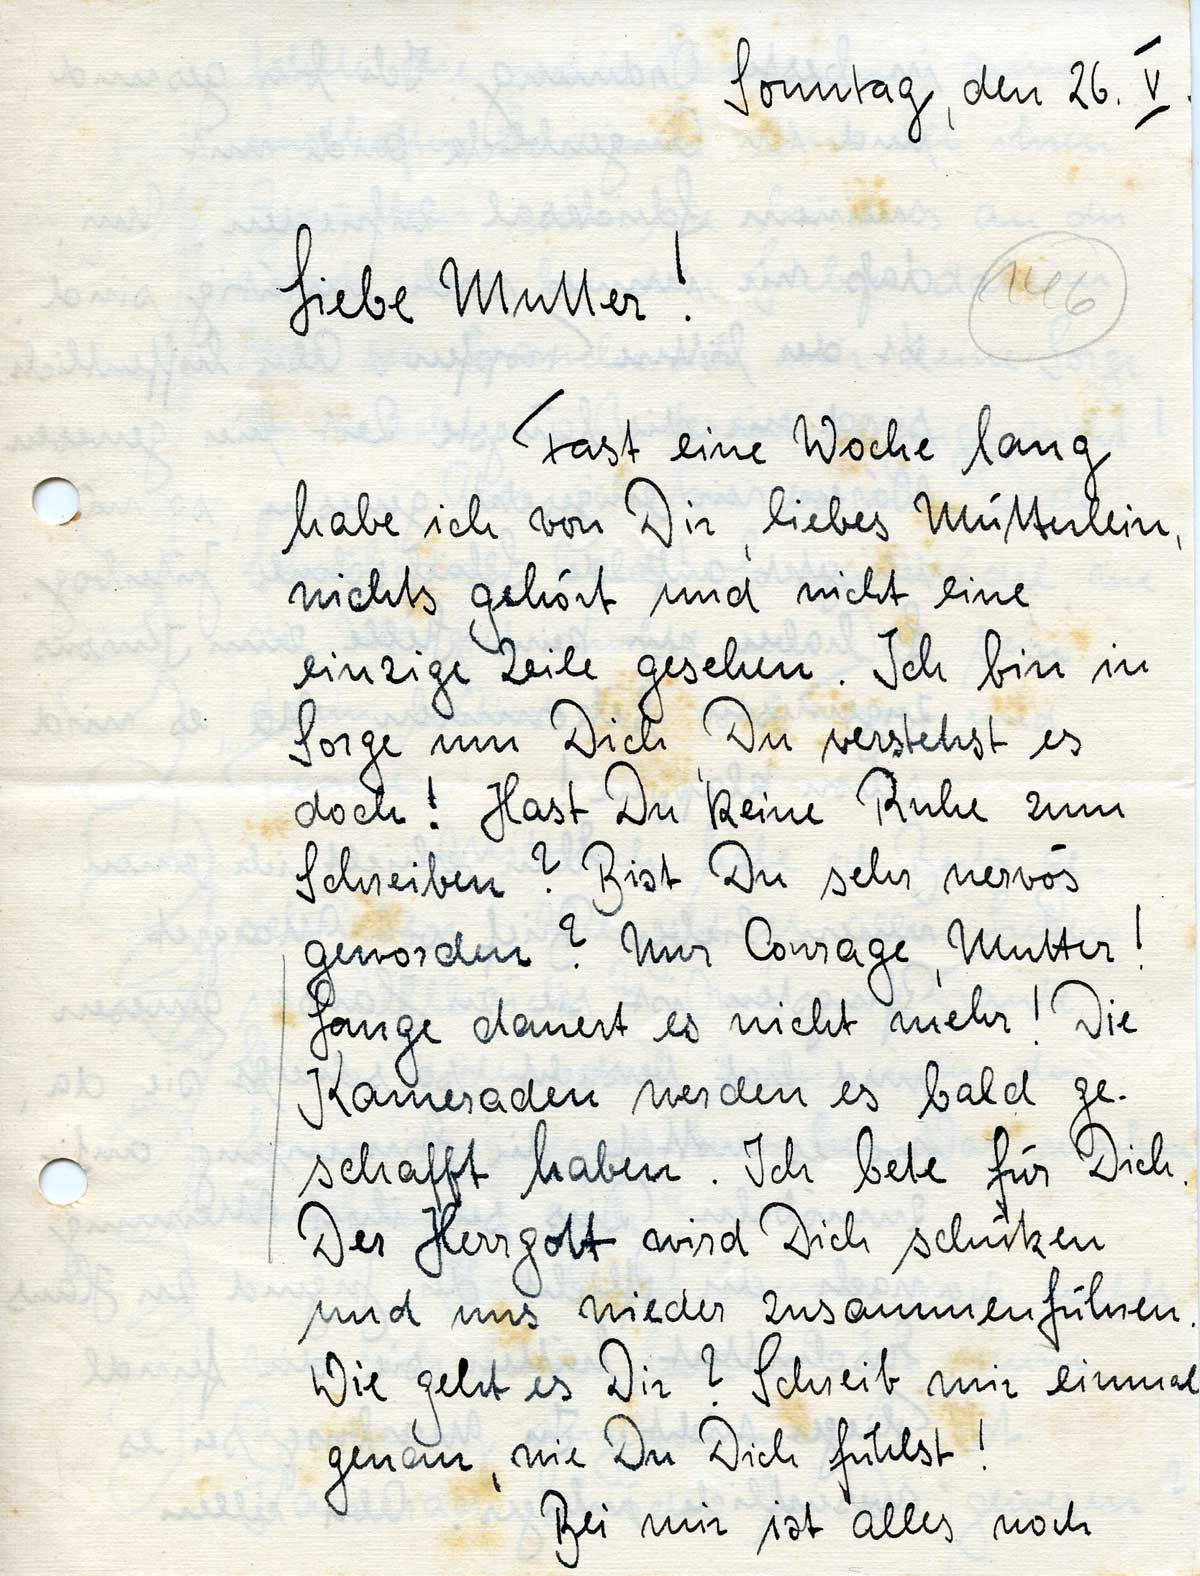 Sonntag, den 26. V.
Liebe Mutter!
Fast eine Woche lang
habe ich von Dir, liebes Mütterlein,
nichts gehört und nicht eine
einzige Zeile gesehen. Ich bin in
Sorge um Dich, Du verstehst es
doch! Hast Du keine Ruhe zum
Schreiben? Bist Du sehr nervös
geworden? Nur Courage, Mutter!
Lange dauert es nicht mehr! Die
Kameraden werden es bald ge-
schafft haben. Ich bete für Dich.
Der Herrgott wird Dich schützen
und uns wieder zusammenführen.
Wie geht es Dir? Schreib mir einmal
genau, wie Du Dich fühlst!
Bei mir ist alles noch